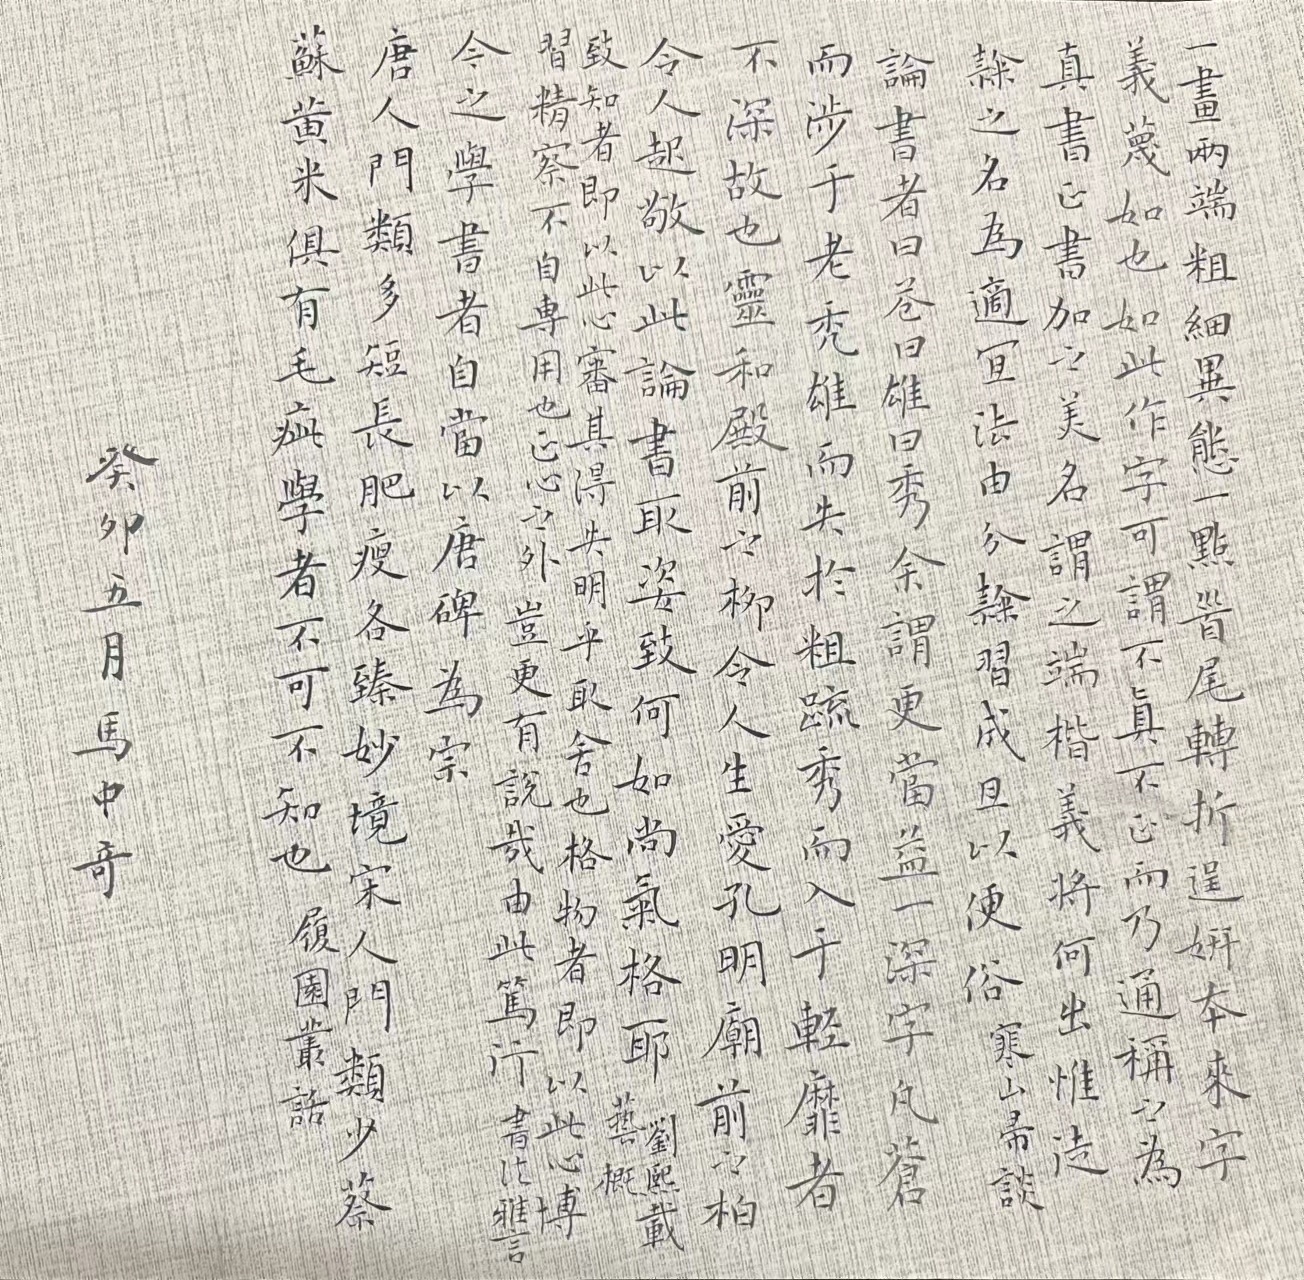 一畫兩端粗細異態一點首尾轉折逞妍本來字
義蔑如也如此作字可謂不真不正而乃通稱之為
真書正書加之美名謂之端楷義將何出惟從
隸之名為適宜法由分隸習成且以便俗 寒山帚談
論書者曰蒼曰雄曰秀余謂更當益一深字凡蒼
而涉于老禿雄而失於粗疏秀而入于輕靡者
不深故也靈和殿前之柳令人生愛孔明廟前之柏
令人起敬以此論書取姿致何如尚氣格耶 劉熙載
藝概
致知者即以此心審其得失明乎取舍也格物者即以此心博
習精察不自專用也正心之外豈更有說哉由此篤行 書法雅言
今之學書者自當以唐碑為宗
唐人門類多短長肥瘦各臻妙境宋人門類少蔡
蘇黃米俱有毛疵學者不可不知也 履園叢話
癸卯五月馬中奇